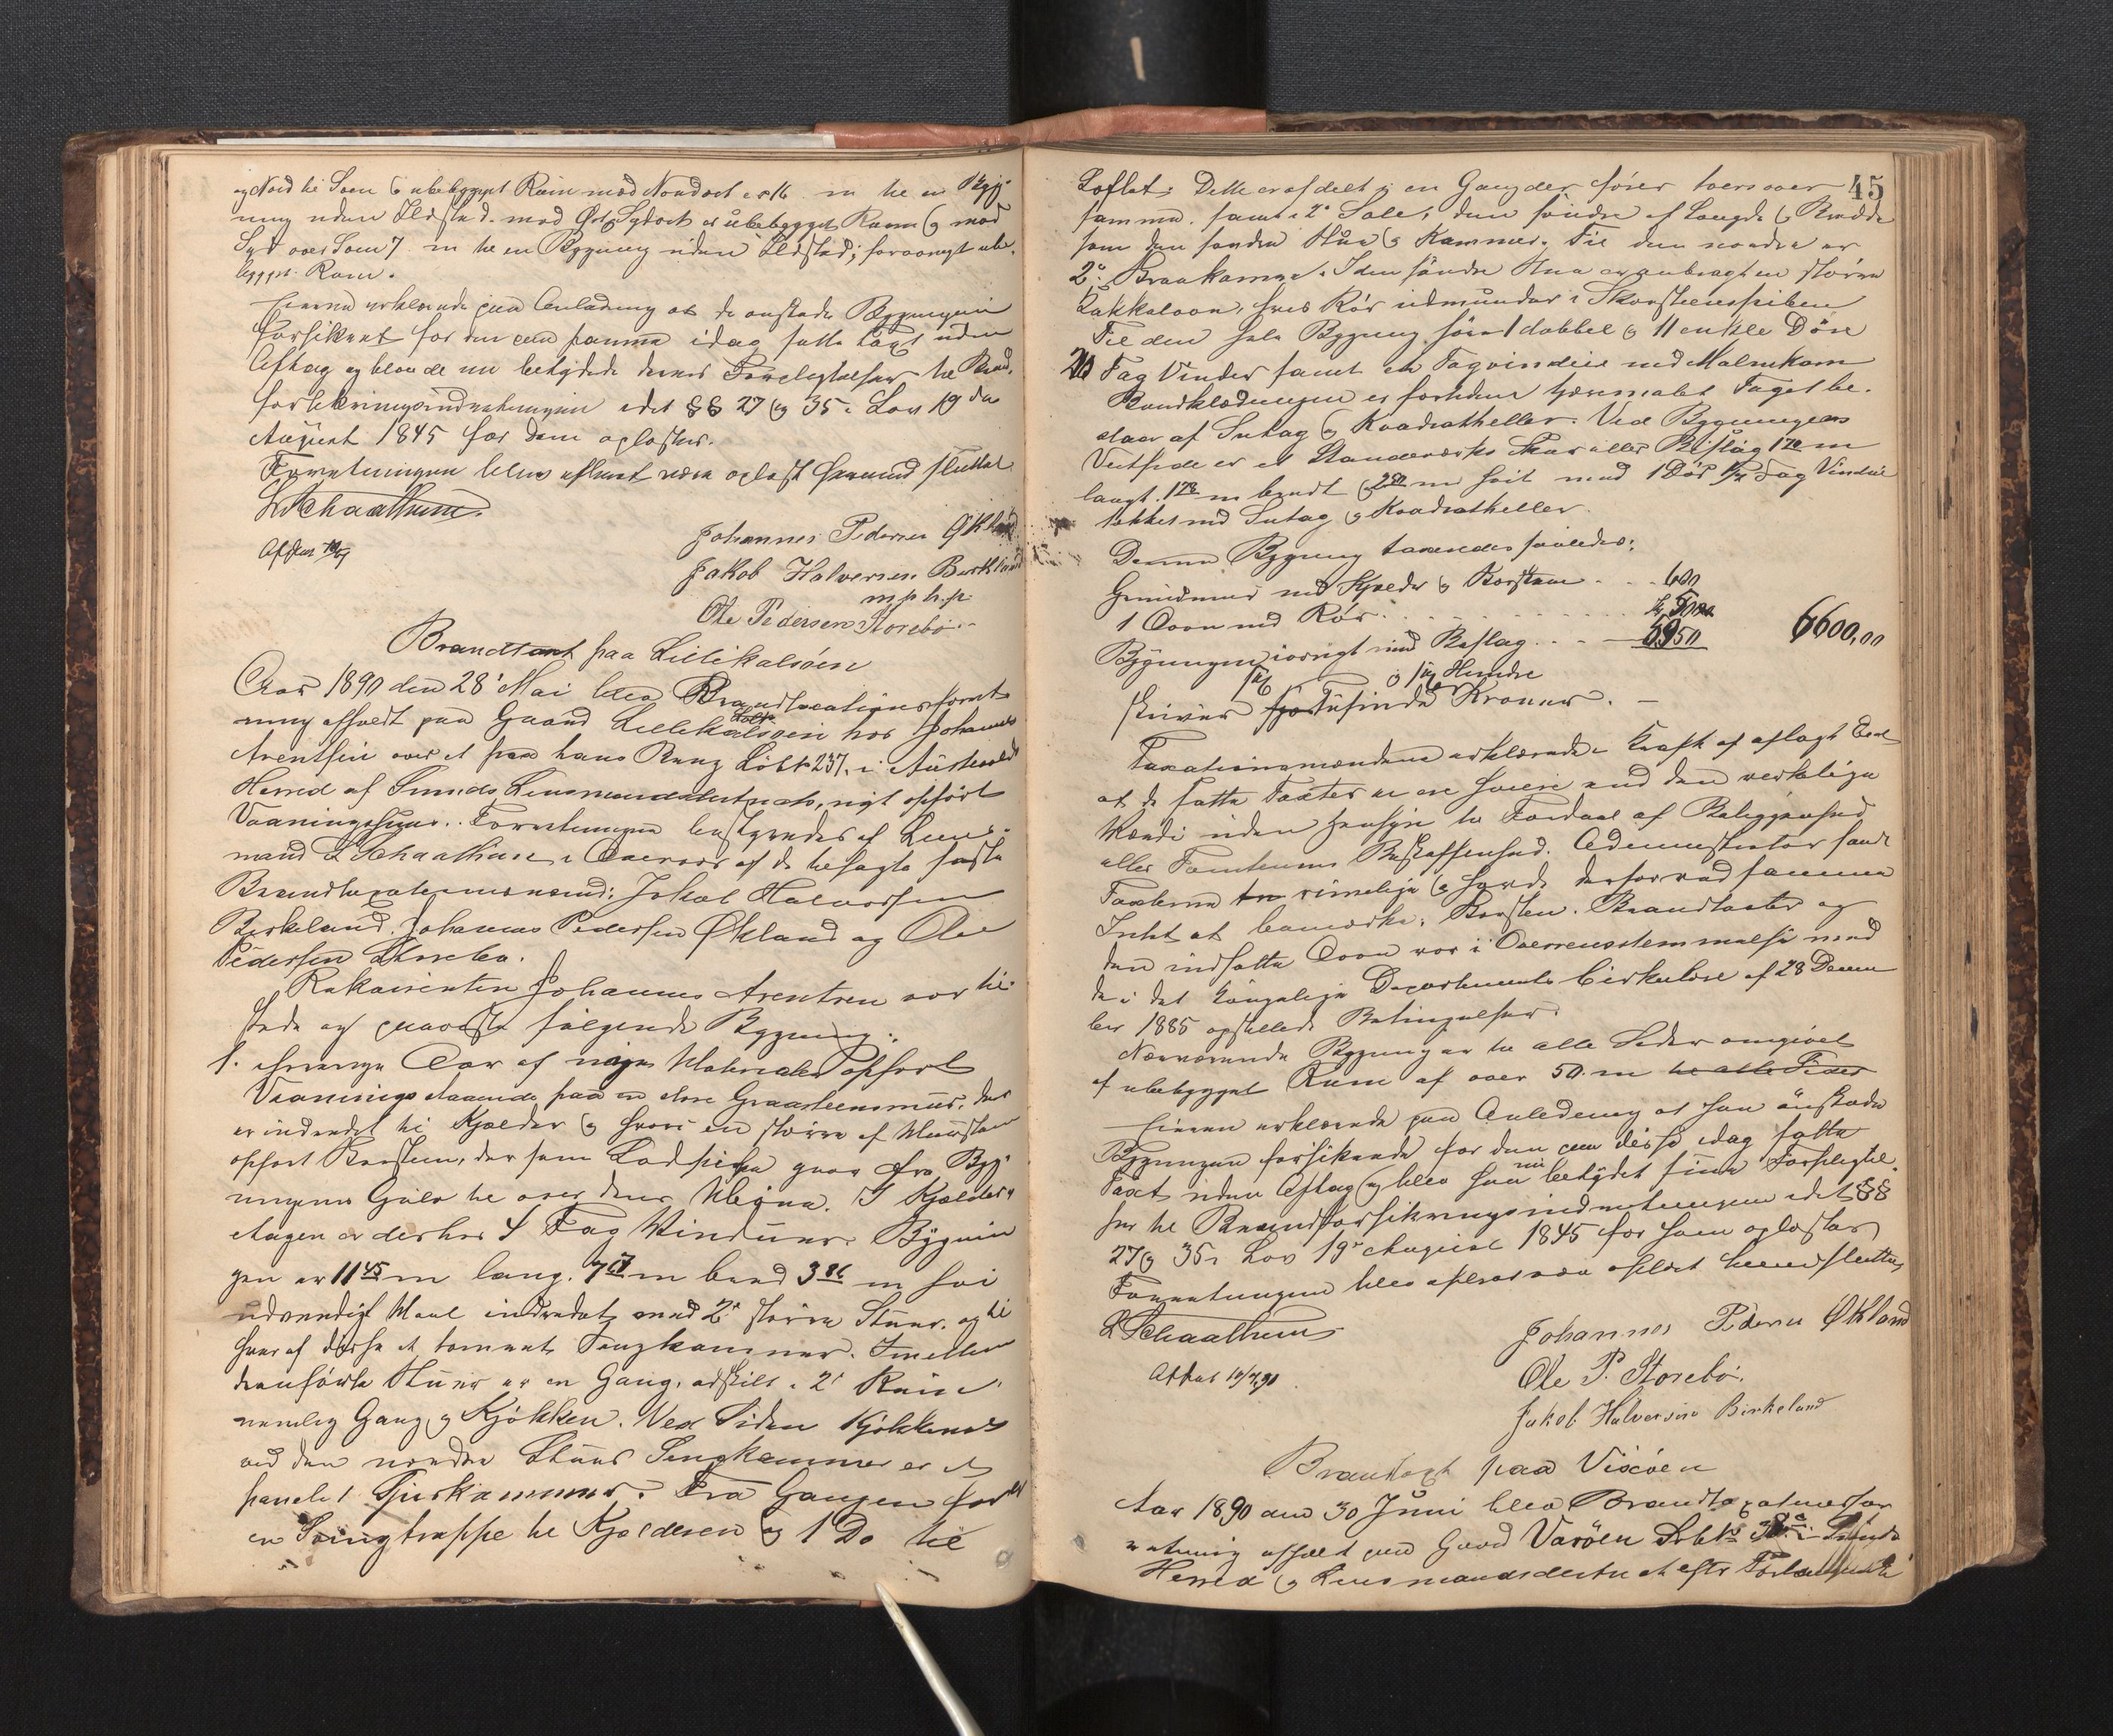 og Nord til Søen og ubebygget Rum mod Nordost er 16 m til en Byg-
ning uden Ildsted. mod Øst og Sydost er ubebygget Rum og mod
Syd over Søen 7 m til en Bygning uden Ildsted; forøvrigt ube-
bygget Rum.
Eierne erklærede paa Anledning at de ønskede Bygningen
forsikret for den paa samme idag satte Taxt uden
Aftag og blev de nu betydede deres Forpligtelser til Brand-
forsikringsindretningen efter §§ 27 og 35 i Lov 19de
August 1845 for dem oplæst.
Forretningen blev afhørt oplæst slutted
L Schaathum
Johannes Pedersen Økland
Jakob Halversen Birkeland
m p h. p.
Ole Pedersen Storebø
Brandtaxt paa Lillekalsøen
Aar 1890 den 28' Mai blev Brandtaxationsforret-
ning afholdt paa Gaard Lillekalsøen hos Johannes
Arentsen over et paa hans Brug Løbe No 237. i Austevold
Herred af Sunds Lensmandsdistrict, nyt opført
Vaaningshuus. Forretningen bestyredes af Lens-
mand L Schaathun i Overvær af de befagte faste
Brandtaxationsmænd: Jakob Halvorsen
Birkeland. Johannes Pedersen Økland og Ole
Pedersen Storebø.
Rekvirenten Johannes Arentsen var til-
stede og paaviste følgende Bygning:
1. Aar af nye Materialier opført
Vaanings staaende paa en Graasteensmuur, der
er indredet til Kjelder og hvori en større af Muursten
opført Korsteen, der som Ladpibe gaar fra Byg-
ningens Gulv til over dens Møne. I Kjelder-
etagen er derhos 4 Fag Vinduer. Bygnin
gen er 11 45 m lang. 7 m bred 3 86 m høi
udvendigt Maal indredet med 2de større Stuer. og til
hver af disse et tømret Sengkammer. Imellem
Stuer er en Gang. adskilt i 2de Rum
nemlig Gang og Kjøkken. Ved Siden Kjøkkenet
ved den nordre Stues Sengkammer er et
panelet Spiskammer. Fra Gangen fører
en Svingtrappe til Kjelderen og 1 Do til
45
Loftet: Dette er afdelt i en Gang der fører tvers over
samme. samt i 2de Sale, den søndre af Længde og Bredde
som den søndre Stue og Kammer. Til den nordre er
2de Kraakamre. I den søndre Stue er anbragt en større
Kakkelovn, hvis Rør udmunder i Skorsteenspiben
Til den hele Bygning hører 1 dobbel og 11 enkle Døre
20 Fag Vinder samt et Tagvindue med Malmkarm
Bordklædningen er forhen hjemmalet Taget be-
staar af Sutag og Kvadratheller. Ved Bygningens
Vestside er et Skur eller Bislag 1 78 m
langt. 1 78 m bredt og 2 50 m høit med 1 Dør 1/2 Fag Vindue
tækket med Sutag og Kvadratheller.
Denne Bygning taxeredes saaledes:
Grundmur med Kjelder og Korsteen . . . 600
1 Ovn med Rør . . . 50
Bygningen iøvrigt med Bislag . . . 5950 6600,00
sex og sex Hundre
skriver Tusinde Kroner. —
Taxationsmændene erklærede i Kraft af aflagt Eed
at de satte Taxter er ei høiere end den verkelige
Værdi uden Hensyn til Fordeel af Beliggenhed
eller Tomtens Beskaffenhed. Administrator fandt
Taxterne rimelige og havde derfor ved samme
Intet at bemærke. Korsten. Brandtaxter og
den indsatte Ovn var i Overensstemmelse med
de i det kongelige Departements Cirkulære af 28 Decem
ber 1885 opstillede Betingelser.
Nærværende Bygning er til alle Sider omgivet
af ubebygget Rum af over 50. m til alle Sider
Eieren erklærede paa Anledning at han ønskede
Bygningen forsikrede for den paa disse idag satte
Taxt uden Aftag og blev ham nu betydet sine Forpligtel-
ser til Brandforsikringsindretningen efter §§
27 og 35 i Lov 19' August 1845 for ham oplæst
Forretningen blev oplæst sluttet
L Schaathum
Johannes Pedersen Økland
Ole P. Storebø.
Jakob Halversen Birkeland
Brandtaxt paa Vixøen
Aar 1890 den 30 Juni blev Brandtaxationsfor
retning afholt paa Gaard Varøen i Sunds
Herred og Lensmandsdistrict efter Forlangende